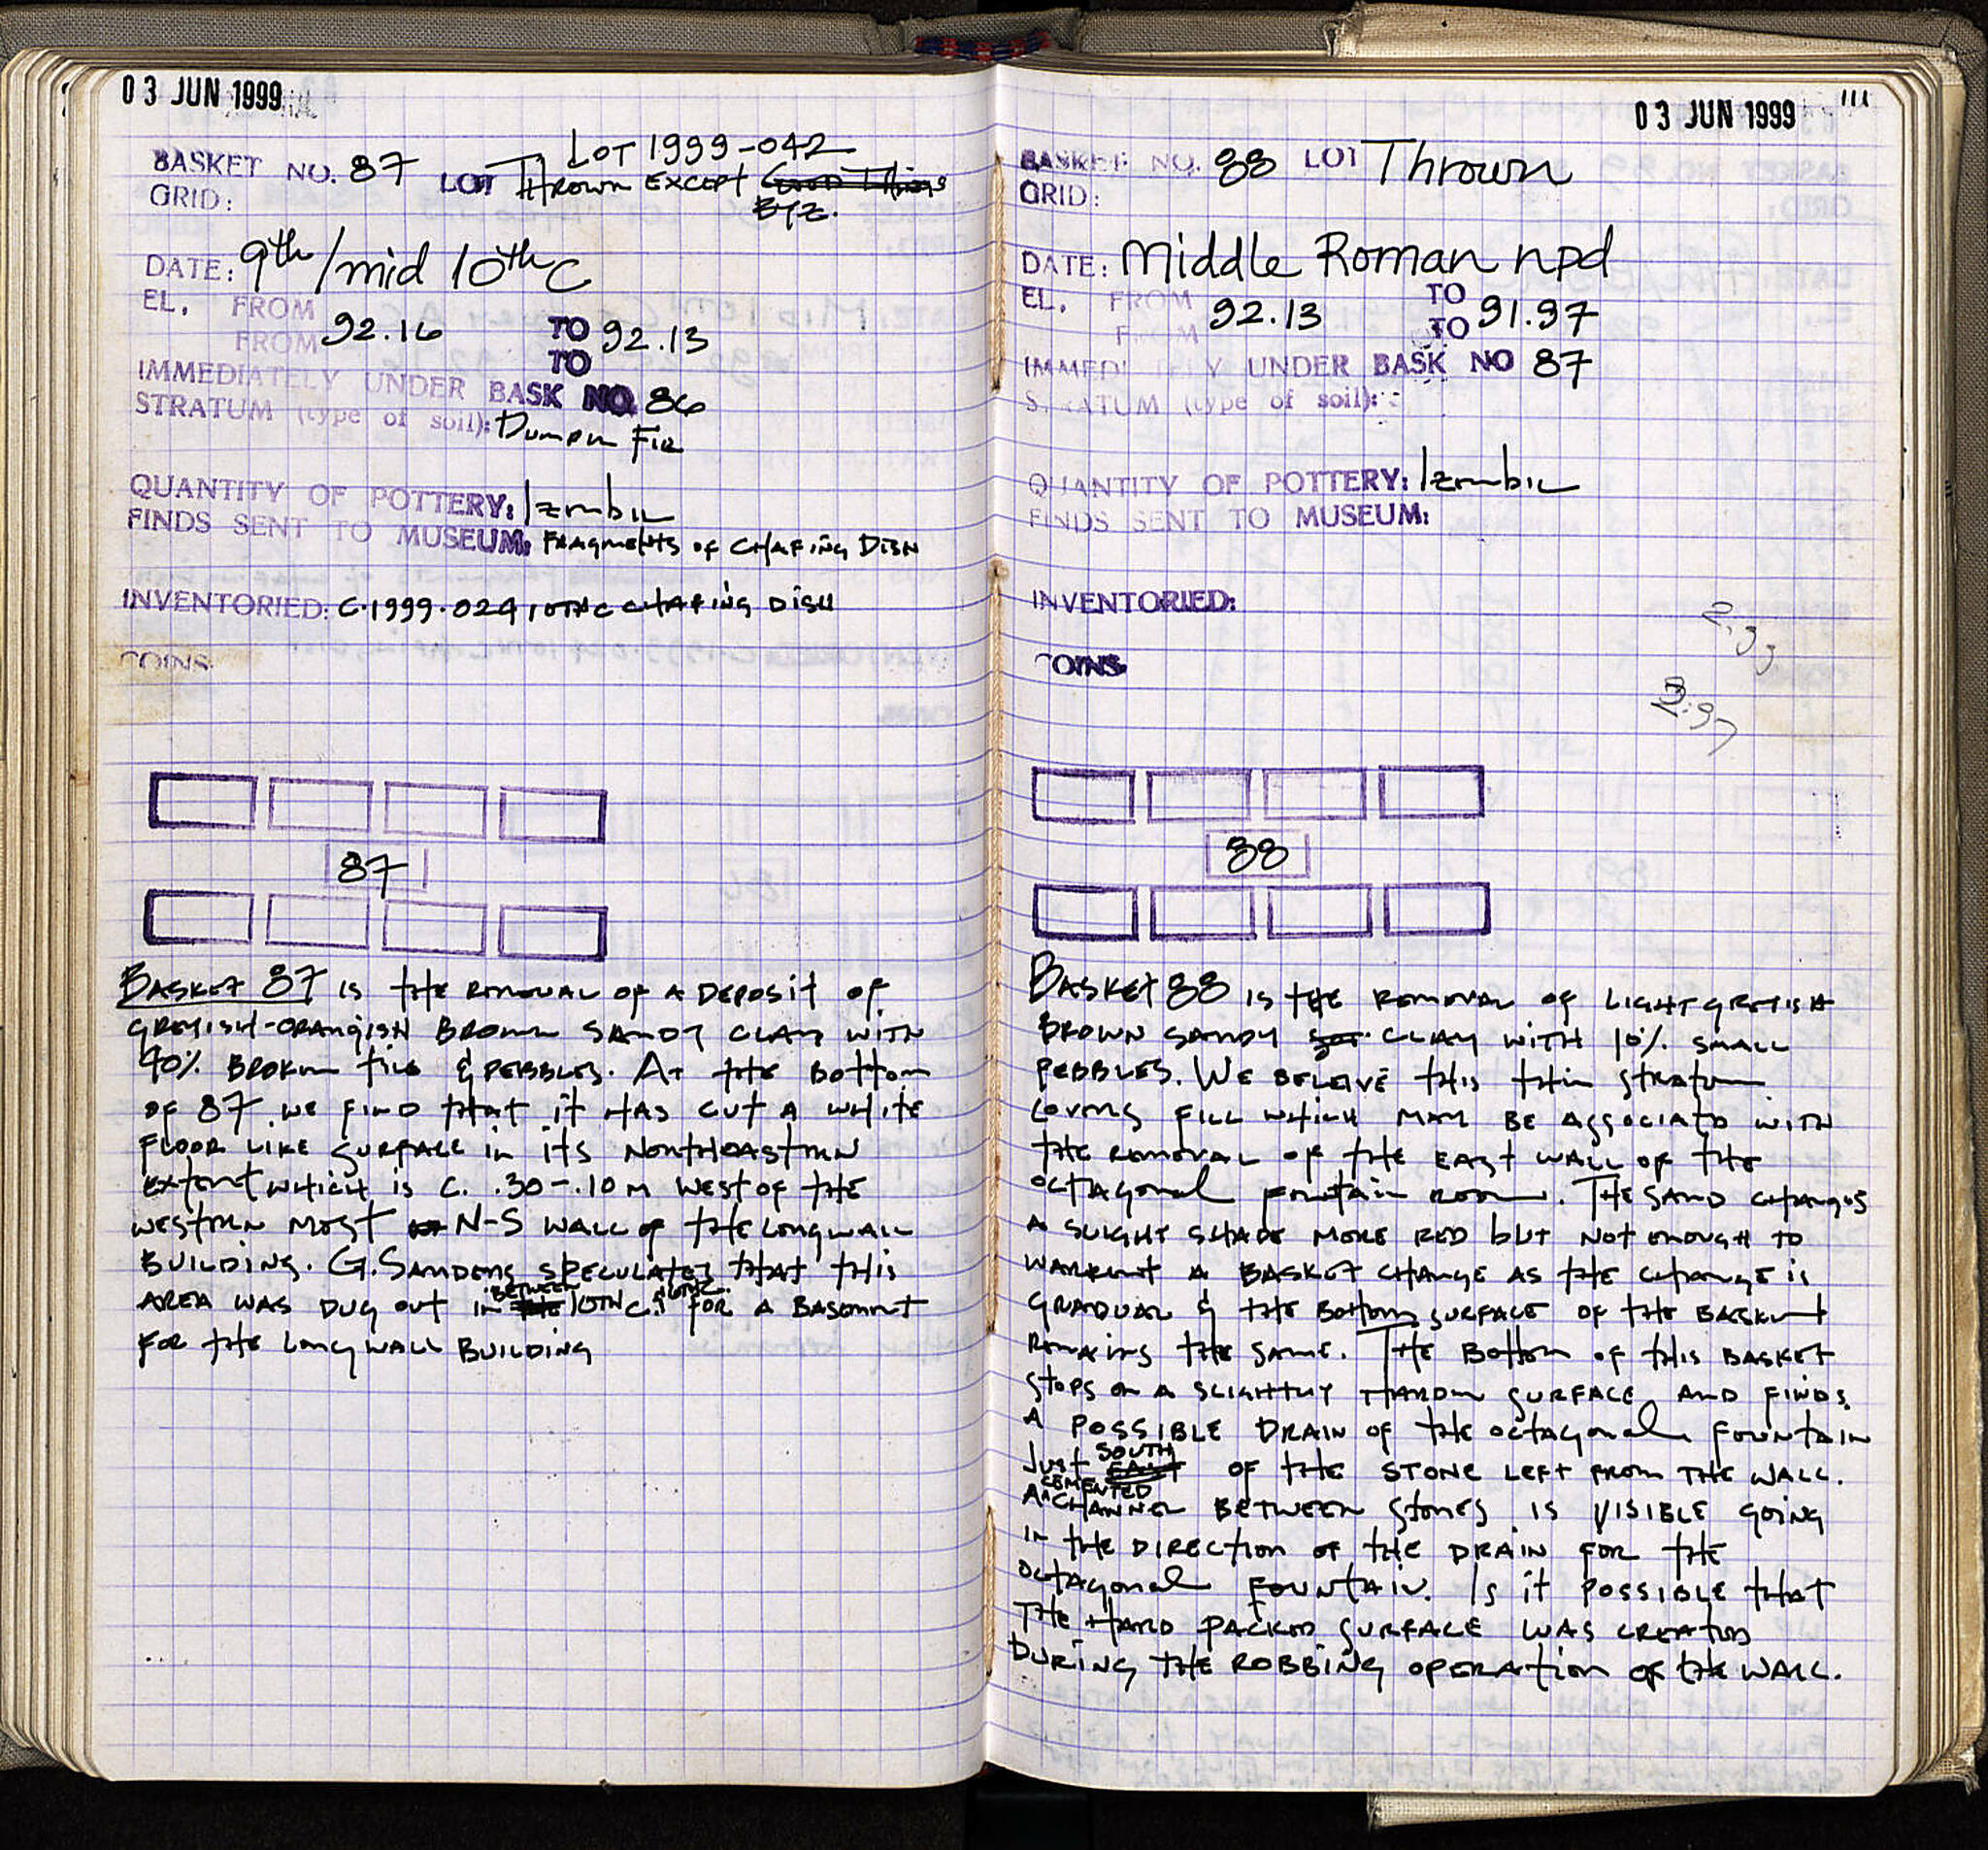 03 JUN 1999
LOT 1999-042
BASKET NO. 87 LOT THROWN EXCEPT GOOD THINGS
GRID: BYZ.
DATE: 9th/mid 10th C
EL. FROM
FROM 92.16 TO 92.13
TO
IMMEDIATELY UNDER BASK NO 86
STRATUM (type of soil): DUMPED FILL
QUANTITY OF POTTERY:
FINDS SENT TO MUSEUM: FRAGMENTS OF CHAFING DISH
INVENTORIED: C.1999.024 10TH C CHAFING DISH
COINS
87
BASKET 87 IS THE REMOVAL OF A DEPOSIT OF
GREYISH-ORANGISH BROWN SANDY CLAY WITH
40% BROKEN TILE & PEBBLES. AT THE BOTTOM
OF 87 WE FIND THAT IT HAS CUT A WHITE
FLOOR LIKE SURFACE IN ITS NORTHEASTERN
EXTENT WHICH IS C. .30-.10 M WEST OF THE
WESTERN MOST N-S WALL OF THE LONG WALL
BUILDING. G. SANDERS SPECULATES THAT THIS
AREA WAS DUG OUT IN BETWEEN THE 10TH C. & FOR A BASEMENT
FOR THE LONG WALL BUILDING
03 JUN 1999 111
BASKET NO. 88 LOT Thrown
GRID:
DATE: Middle Roman npd
EL. FROM 92.13 TO 91.97
FROM TO
IMMEDI TELY UNDER BASK NO 87
S RATUM (type of soil):
QUANTITY OF POTTERY:
FINDS SENT TO MUSEUM:
INVENTORIED:
COINS
2.93
2.97
88
BASKET 88 IS THE REMOVAL OF LIGHT GREYISH
BROWN SANDY CLAY WITH 10% SMALL
PEBBLES. WE BELEIVE THIS THIN STRATUM
COVERS FILL WHICH MAY BE ASSOCIATED WITH
THE REMOVAL OF THE EAST WALL OF THE
OCTAGONAL FOUNTAIN ROOM. THE SAND CHANGES
A SLIGHT SHADE MORE RED BUT NOT ENOUGH TO
WARRENT A BASKET CHANGE AS THE CHANGE IS
GRADUAL & THE BOTTOM SURFACE OF THE BASKET
REMAINS THE SAME. THE BOTTOM OF THIS BASKET
STOPS ON A SLIGHTLY HARDER SURFACE AND FINDS
A POSSIBLE DRAIN OF THE OCTAGONAL FOUNTAIN
JUST SOUTH EAST OF THE STONE LEFT FROM THE WALL.
A CEMENTED CHANNEL BETWEEN STONES IS VISIBLE GOING
IN THE DIRECTION OF THE DRAIN FOR THE
OCTAGONAL FOUNTAIN. IS IT POSSIBLE THAT
THE HARD PACKED SURFACE WAS CREATED
DURING THE ROBBING OPERATION OF THE WALL.